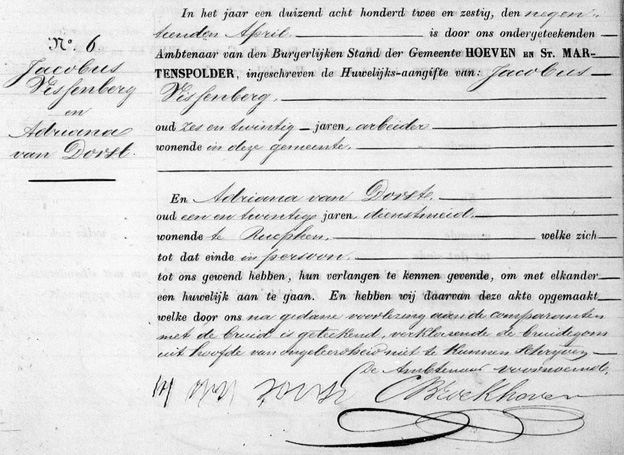 N° 6.
Jacobus
Vissenberg
en
Adriana
van Dorst.
In het jaar een duizend acht honderd twee en zestig, den negen-
tienden April is door ons ondergeteekenden
Ambtenaar van den Burgerlijken Stand der Gemeente HOEVEN EN ST. MAR-
TENSPOLDER, ingeschreven de Huwelijks-aangifte van: Jacobus
Vissenberg,
oud zes en twintig jaren, arbeider
wonende in deze gemeente.
En Adriana van Dorst.
oud een en twintig jaren, dienstmeid
wonende te Rucphen. welke zich
tot dat einde in persoon
tot ons gewend hebben, hun verlangen te kennen gevende, om met elkander
een huwelijk aan te gaan. En hebben wij daarvan deze akte opgemaakt
welke door ons na gedane voorlezing aan de comparanten
met de bruid is geteekend, verklarende de bruidegom
uit hoofde van ongeleerdheid niet te kunnen schrijven
De Ambtenaar voornoemd.
CBroekhoven